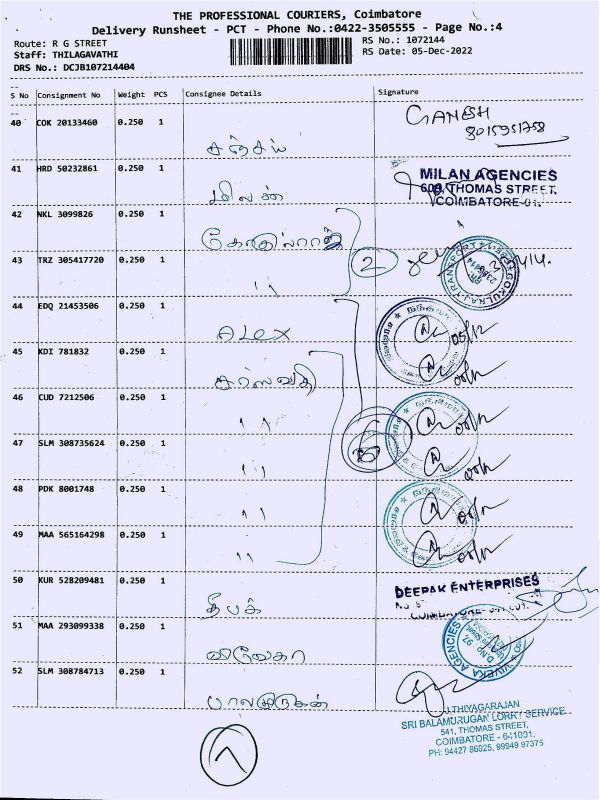 THE PROFESSIONAL COURIERS, Coimbatore
Delivery Runsheet - PCT - Phone No.:0422-3505555 - Page No.:4
Route: R G STREET
RS No.: 1072144
Staff: THILAGAVATHI
RS Date: 05-Dec-2022
DRS No.: DCJB107214404
S No Consignment No Weight PCS Consignee Details Signature
40 COK 20133460 0.250 1
GANESH
8015951758
சஞ்சய்
41 HRD 50232861 0.250 1
MILAN AGENCIES
608, THOMAS STREET,
COIMBATORE-01.
மிலன்
42 NKL 3099826 0.250 1
கோகுல்ராஜ்
43 TRZ 305417720 0.250 1
2
GOKULRAJ TRANSPORT
" 
44 EDQ 21453506 0.250 1
ALEX
05/12
45 KDI 781832 0.250 1
சரஸ்வதி
46 CUD 7212506 0.250 1
"
47 SLM 308735624 0.250 1
"
48 PDK 8001748 0.250 1
"
49 MAA 565164298 0.250 1
"
50 KUR 528209481 0.250 1
DEEPAK ENTERPRISES
தீபக்
51 MAA 293099338 0.250 1
VIVEKA AGENCIES
விவேகா
52 SLM 308784713 0.250 1
பாலமுருகன்
J.THIYAGARAJAN
SRI BALAMURUGAN LORRY SERVICE
541, THOMAS STREET,
COIMBATORE - 641001.
PH: 94427 86025, 99949 97375
7